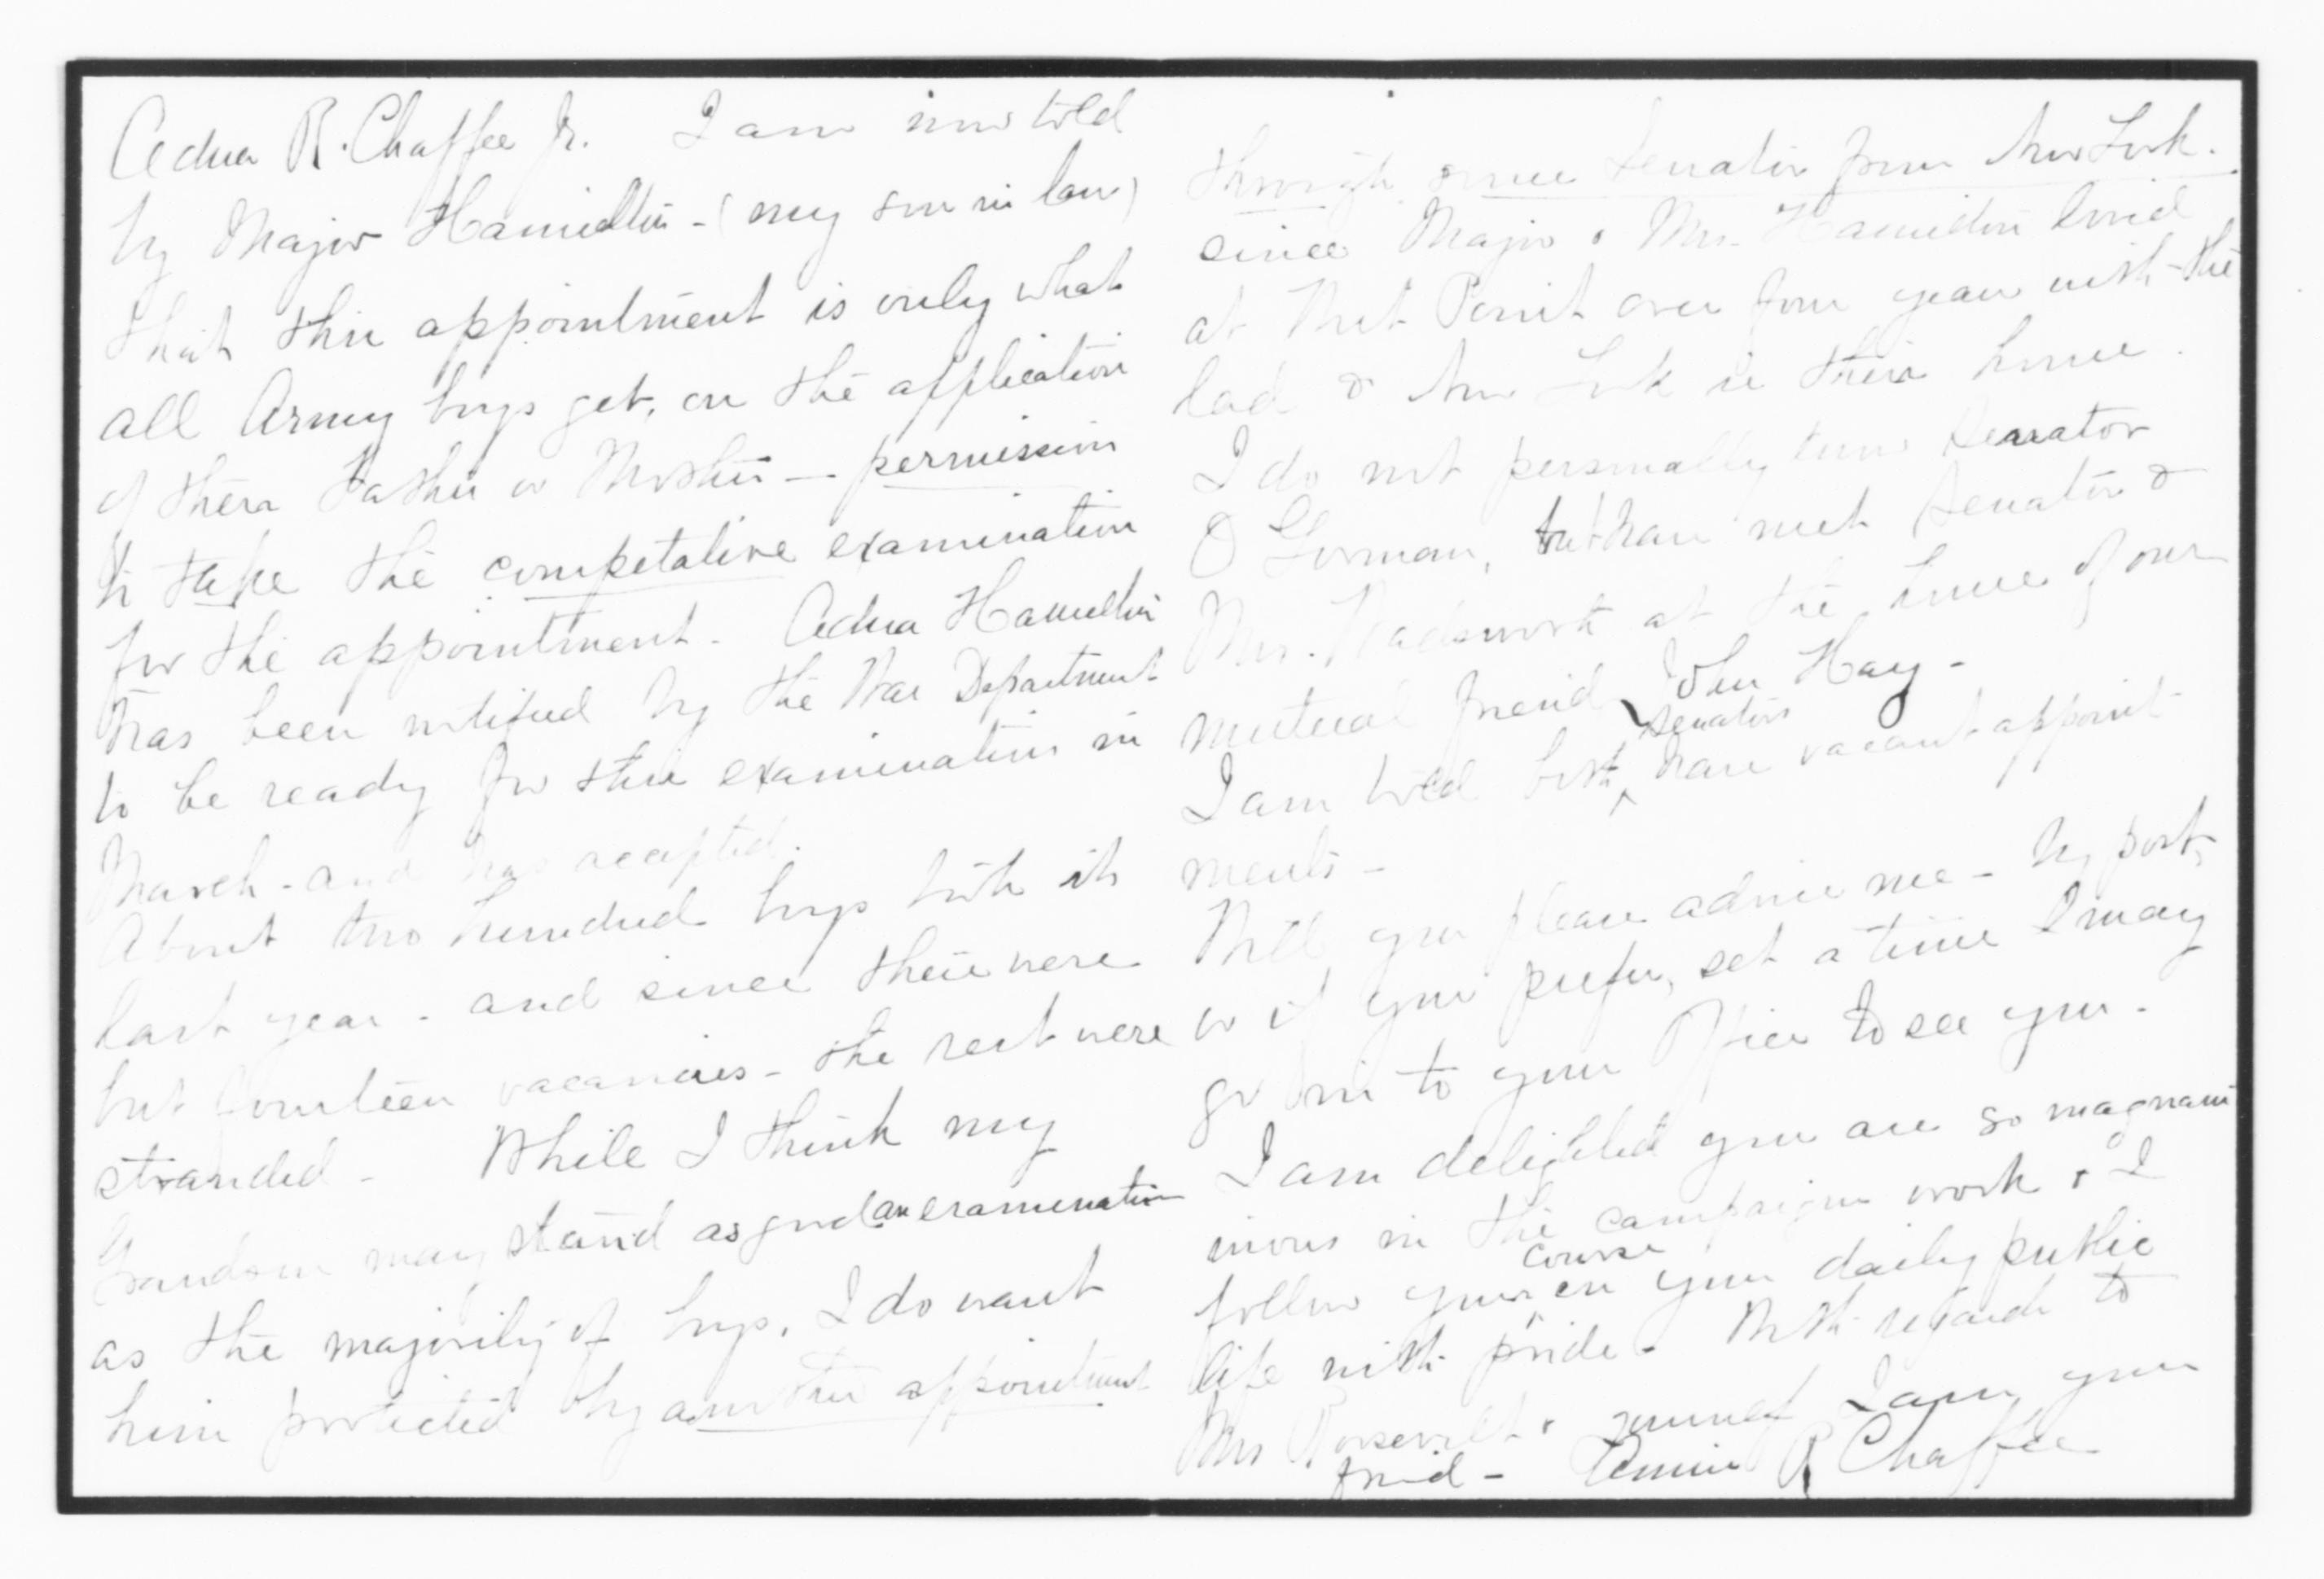 Adna R. Chaffee Jr. I am now told
by Major Hamilton - (my son in law)
that this appointment is only what
all Army boys get, on the application
of their Father or Mother - permission
to take the competative examination
for the appointment. Adna Hamilton
has been notified by the War Department
to be ready for this examination in
March - and has accepted.
About two hundred boys took it
last year - and since there were
but fourteen vacancies - the rest were
stranded - While I think my
Grandson may stand as good an examination
as the majority of boys, I do want
him protected by another appointment
through some Senator from New York.
since Major & Mrs. Hamilton lived
at West Point over four years with the
lad & New York is their home.
I do not personally know Senator
O Gorman, but have met Senator &
Mrs. Wadsworth at the home of our
mutual friend John Hay -
I am told both Senators have vacant appoint
ments -
Will you please advise me - by post,
or if you prefer, set a time I may
go in to your Office to see you -
I am delighted you are so magnani
mous in the campaign work & I
follow your course in your daily public
life with pride - With regards to
Mrs Roosevelt & yourself I am your
friend - Annie R Chaffee